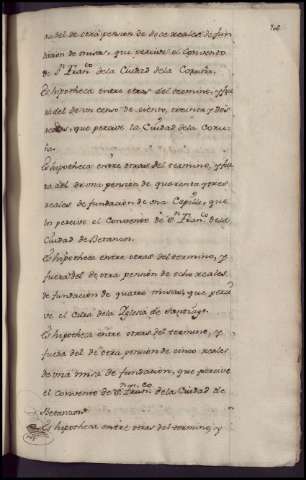 ra del de otra pension de doce reales de fun
dacion de misas, que percive el Convento
de Sn Franco de la Ciudad de la Coruña.
Es hipotheca entre otras del termino, y fue
ra del de un censo de ciento, treinta y dos
reales, que percive la Ciudad de la Coru
ña.
Es hipotheca entre otras del termino, y fue
ra del de una pension de quarenta y tres
reales de fundacion de una Capilla, que
lo percive el Convento de Sn Franco de la
Ciudad de Betanzos.
Es hipotheca entre otras del termino, y
fuera del de otra pension de ocho reales
de fundacion de quatro misas, que perci
ve el Cura de la Iglesia de Santiago.
Es hipotheca entre otras del termino, y
fuera del de otra pension de cinco reales
de una misa de fundacion, que percive
el convento de Sn Franco de la Ciudad de
Betanzos.
Es hipotheca entre otras del termino, y